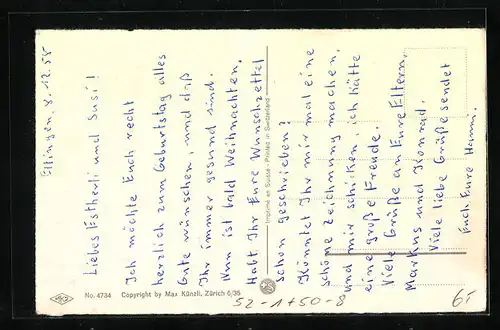 Effingen, 8.12.55
Liebes Estherli und Susi!
Ich möchte Euch recht
herzlich zum Geburtstag alles
Gute wünschen, und daß
Ihr immer gesund sind.
Nun ist bald Weihnachten.
Habt Ihr Eure Wunschzettel
schon geschrieben?
Könntet Ihr mir mal eine
schöne Zeichnung machen,
und mir schicken, ich hätte
eine große Freude.
Viele Grüße an Eure Eltern,
Markus und Konrad.
Viele liebe Grüße sendet
Euch Eure Hanni.
Imprimé en Suisse - Printed in Switzerland
No. 4734 Copyright by Max Künzli, Zürich 6/35
52-1+50-8
6.-